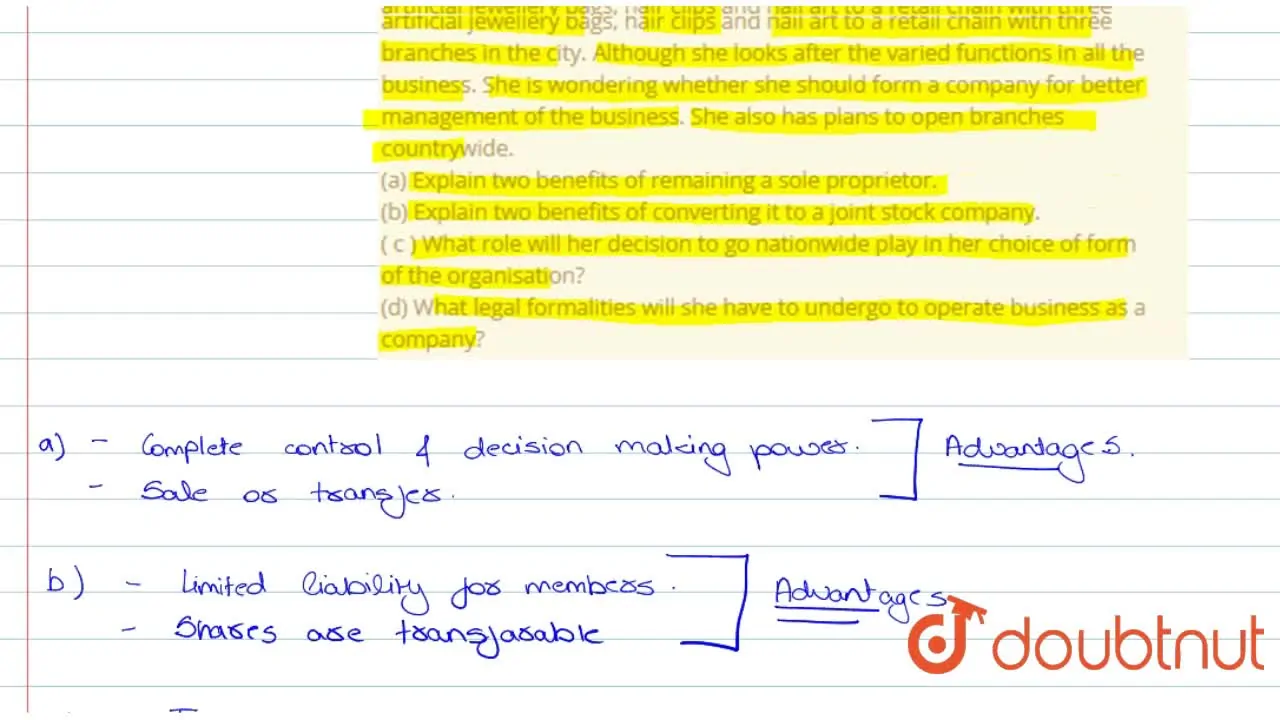 artificial jewellery bags, hair clips and nail art to a retail chain with three
artificial jewellery bags, hair clips and nail art to a retail chain with three
branches in the city. Although she looks after the varied functions in all the
business. She is wondering whether she should form a company for better
management of the business. She also has plans to open branches
countrywide.
(a) Explain two benefits of remaining a sole proprietor.
(b) Explain two benefits of converting it to a joint stock company.
( c ) What role will her decision to go nationwide play in her choice of form
of the organisation?
(d) What legal formalities will she have to undergo to operate business as a
company?
a) - Complete control & decision making power. Advantages.
- Sale or transfer.
b) - Limited liability for members. Advantages
- Shares are transjarable
doubtnut